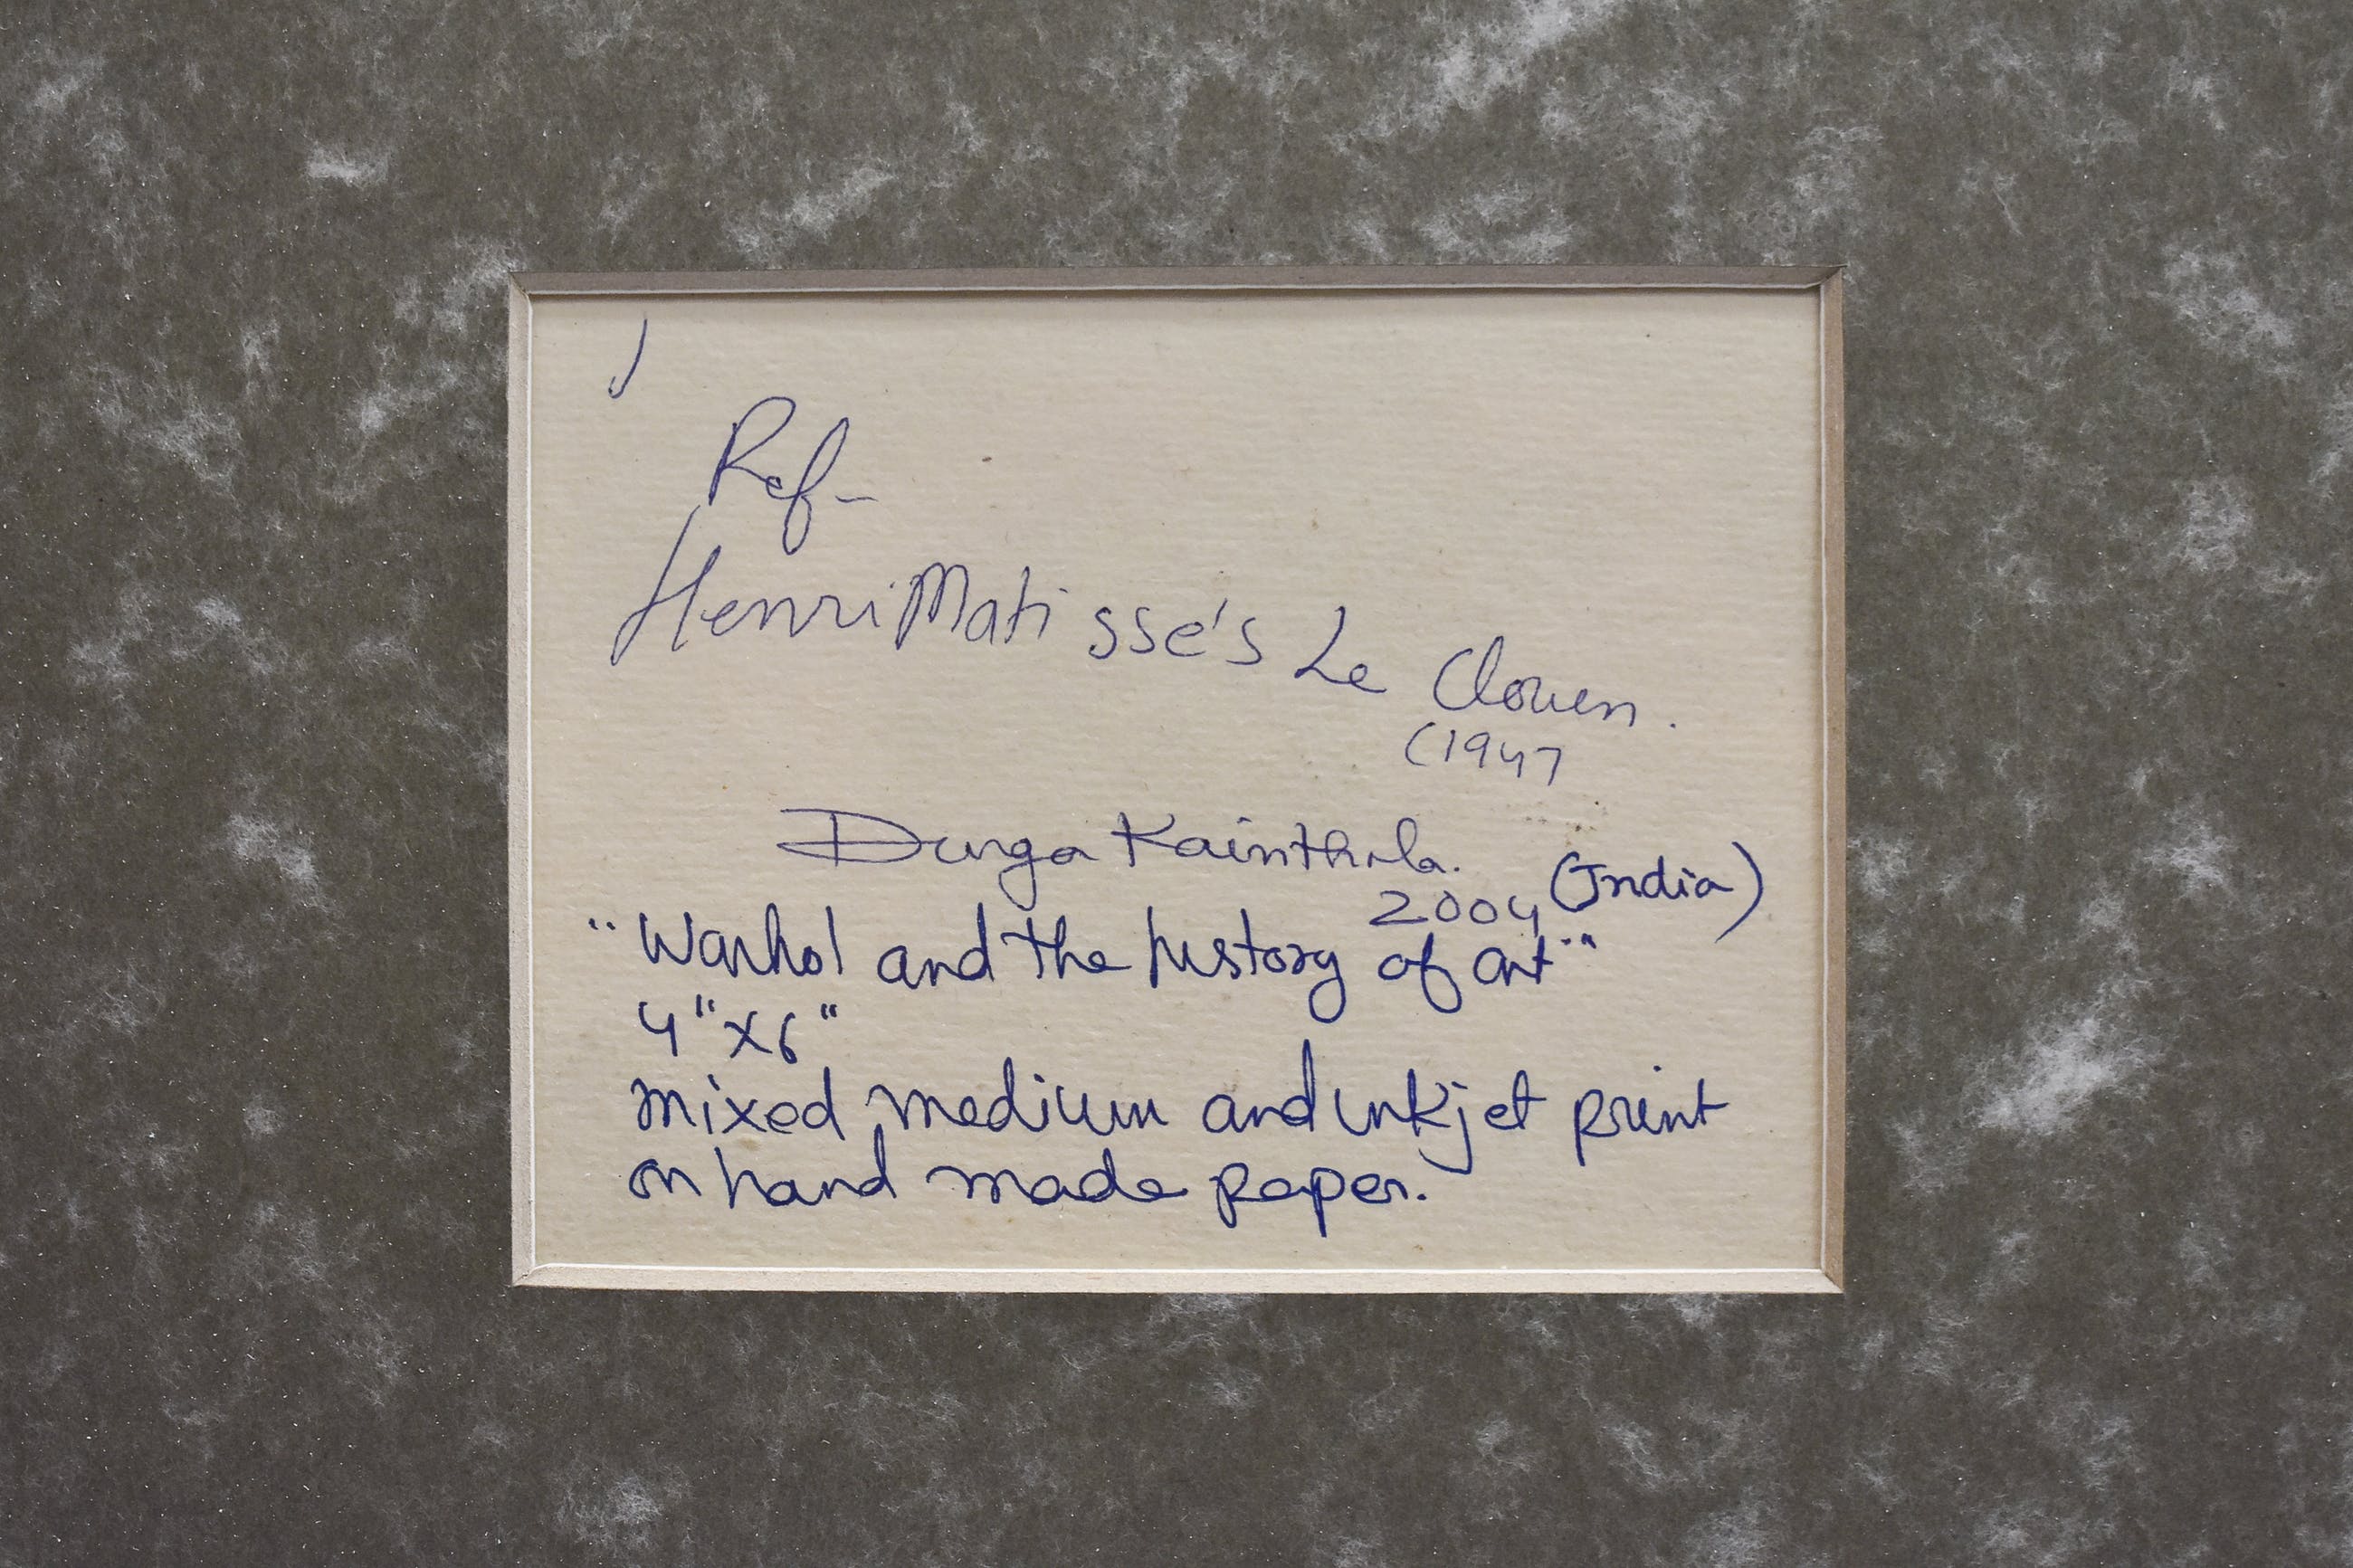 Ref-
Henri Matisse's Le Clouen.
(1947
Durga Kainthola.
2004 (India)
"Warhol and the history of art"
4"x6"
mixed medium and inkjet print
on hand made paper.